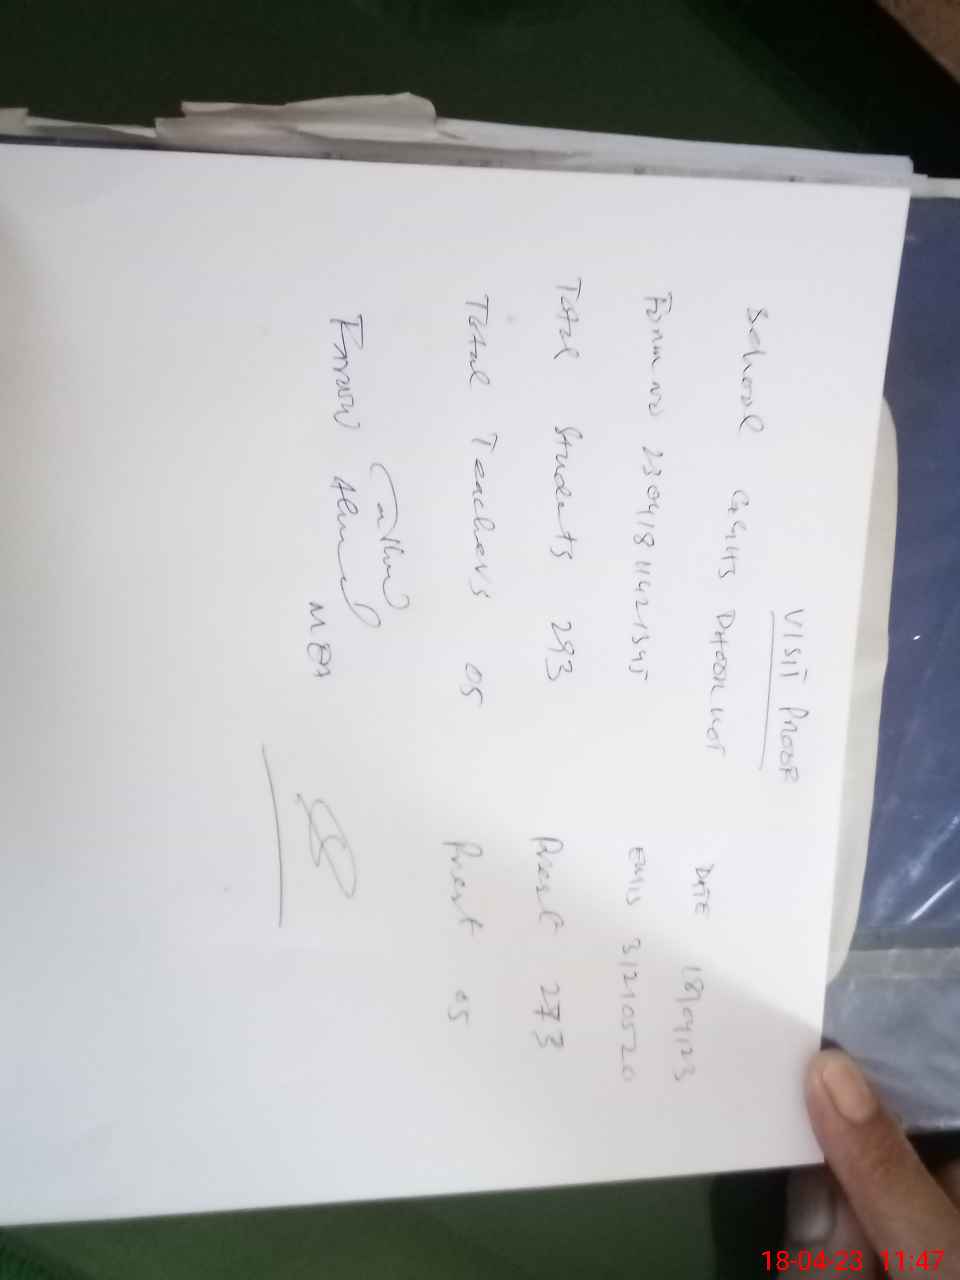 VISIT PROOF
School GGHS DHOORKOT DATE 18/04/23
Form no 23041811421345 EMIS 31210520
Total Students 293 Prest 273
Total Teachers 05 Prest 05
Ahmed MEA
18-04-23 11:47